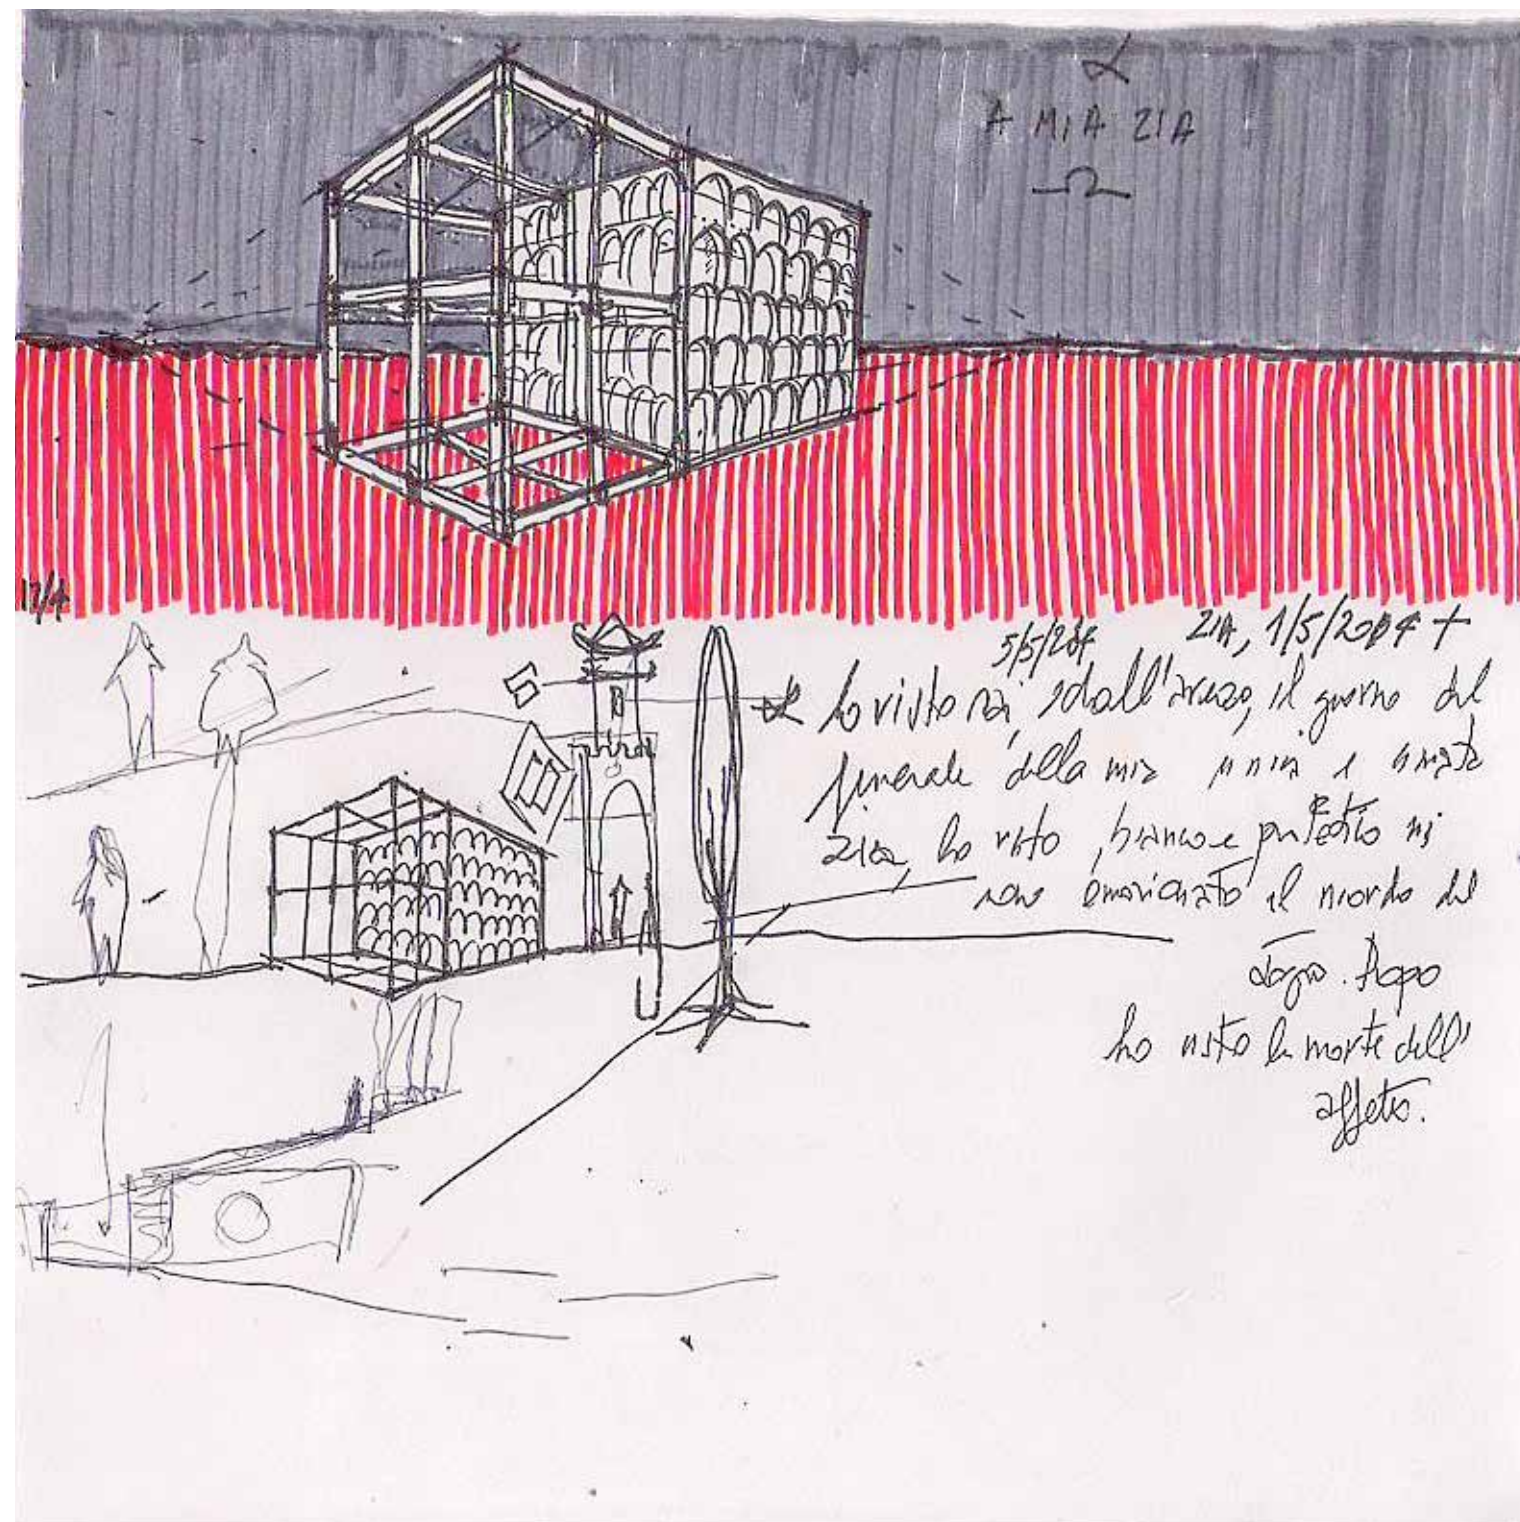 α
A MIA ZIA
Ω
5/5/204 ZIA, 1/5/2004 +
ho visto il giorno del
funerale della mia unica e amata
zia, ho visto, bianco e mi
sono emozionato il ricordo del
sogno. Dopo
ho visto la morte dell'
affetto.